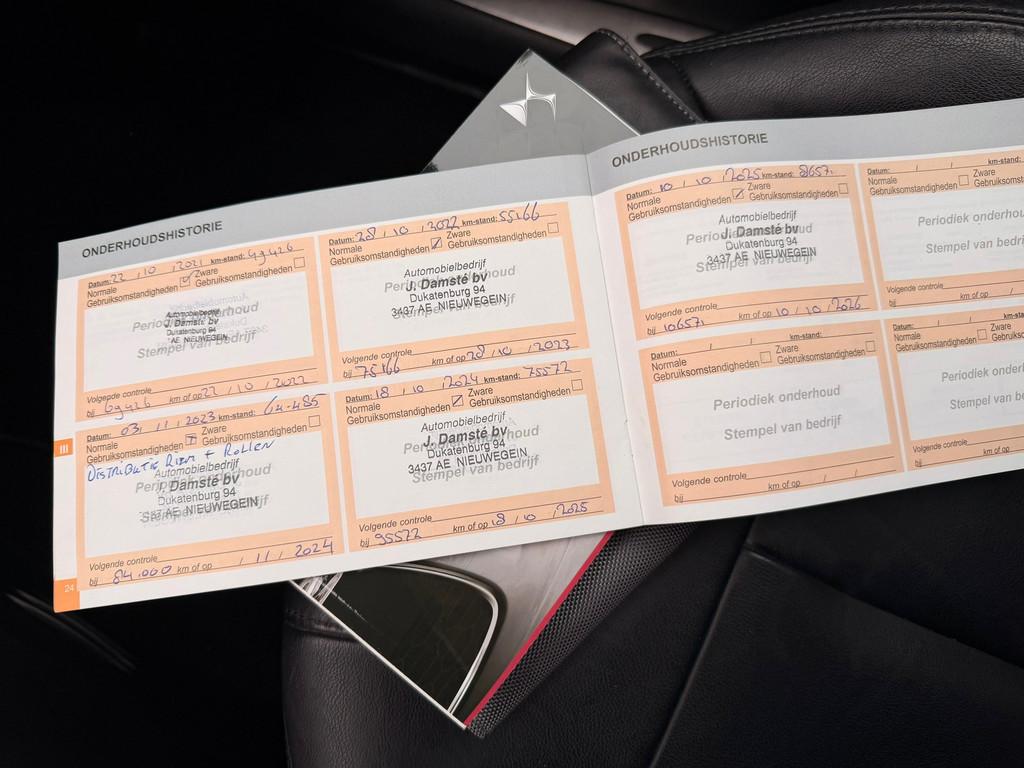 ONDERHOUDSHISTORIE
Datum: 22 / 10 / 2021 km-stand: 49426
Normale Gebruiksomstandigheden ☑ Zware Gebruiksomstandigheden ☐
Periodiek onderhoud
Stempel van bedrijf
Automobielbedrijf
J. Damsté bv
Dukatenburg 94
AE NIEUWEGEIN
Volgende controle
bij 69426 km of op 22 / 10 / 2022
Datum: 28 / 10 / 2022 km-stand: 55166
Normale Gebruiksomstandigheden ☑ Zware Gebruiksomstandigheden ☐
Periodiek onderhoud
Stempel van bedrijf
Automobielbedrijf
J. Damsté bv
Dukatenburg 94
3437 AE NIEUWEGEIN
Volgende controle
bij 75166 km of op 28 / 10 / 2023
Datum: 03 / 11 / 2023 km-stand: 64-485
Normale Gebruiksomstandigheden ☑ Zware Gebruiksomstandigheden ☐
DISTRIBUTIE RIEM + ROLLEN
Periodiek onderhoud
Stempel van bedrijf
Automobielbedrijf
J. Damsté bv
Dukatenburg 94
3437 AE NIEUWEGEIN
Volgende controle
bij 84.000 km of op / 11 / 2024
Datum: 18 / 10 / 2024 km-stand: 75572
Normale Gebruiksomstandigheden ☑ Zware Gebruiksomstandigheden ☐
Periodiek onderhoud
Stempel van bedrijf
Automobielbedrijf
J. Damsté bv
Dukatenburg 94
3437 AE NIEUWEGEIN
Volgende controle
bij 95572 km of op 18 / 10 / 2025
III
24
ONDERHOUDSHISTORIE
Datum: 10 / 10 / 2025 km-stand: 86571
Normale Gebruiksomstandigheden ☑ Zware Gebruiksomstandigheden ☐
Periodiek onderhoud
Stempel van bedrijf
Automobielbedrijf
J. Damsté bv
Dukatenburg 94
3437 AE NIEUWEGEIN
Volgende controle
bij 106571 km of op 10 / 10 / 2026
Datum: / / km-stand:
Normale Gebruiksomstandigheden ☐ Zware Gebruiksomst
Periodiek onderhou
Stempel van bedri
Volgende controle
bij km of op /
Datum: / / km-stand:
Normale Gebruiksomstandigheden ☐ Zware Gebruiksomstandigheden ☐
Periodiek onderhoud
Stempel van bedrijf
Volgende controle
bij km of op / /
Datum: / / km-sta
Normale Gebruiksomstandigheden ☐ Zware Gebruiks
Periodiek onderho
Stempel van bed
Volgende controle
bij km of op